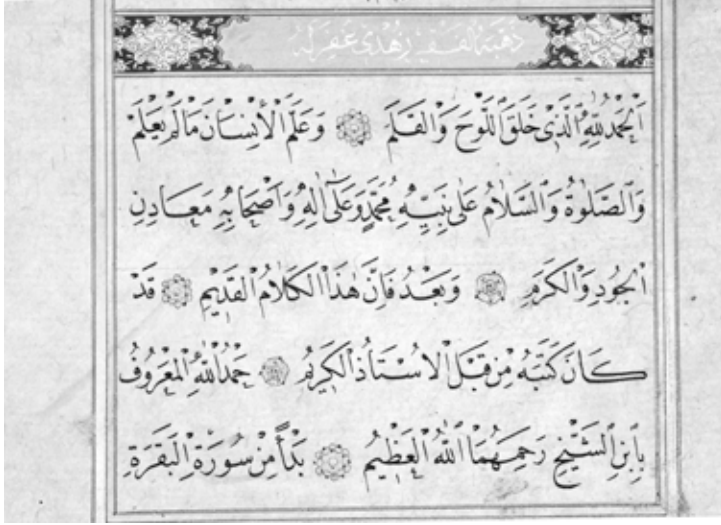 ذهبه الفقير زهدى غفر له
اَلْحَمْدُ لِلّٰهِ الَّذِى خَلَقَ اللَّوْحَ وَالْقَلَمَ وَعَلَّمَ الْاِنْسَانَ مَا لَمْ يَعْلَمْ
وَالصَّلٰوةُ وَالسَّلَامُ عَلٰى نَبِيِّهِ مُحَمَّدٍ وَعَلٰى اٰلِهِ وَاَصْحَابِهِ مَعَادِنِ
الْجُودِ وَالْكَرَمِ وَبَعْدُ فَاِنَّ هٰذَا الْكَلَامُ الْقَدِيمِ قَدْ
كَانَ كَتَبَهُ مِنْ قَبْلُ الْاُسْتَاذُ الْكَرِيمُ حَمْدُ اللّٰهِ الْمَعْرُوفُ
بِابْنِ الشَّيْخِ رَحِمَهُمَا اللّٰهُ الْعَظِيمُ بَدْأً مِنْ سُورَةِ الْبَقَرَةِ